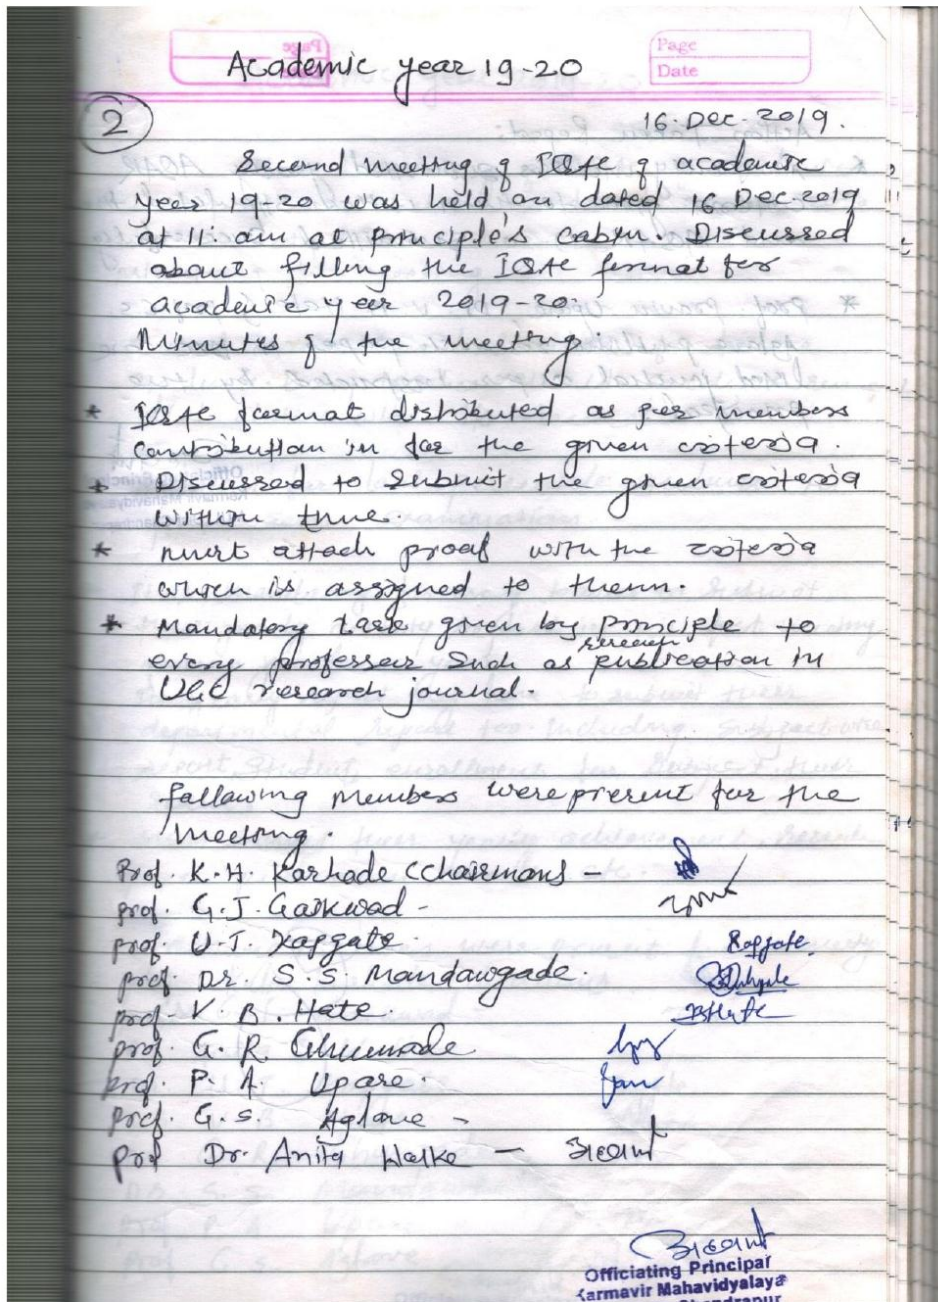 Page
Date
Academic year 19-20
2
16. Dec. 2019.
Second meeting of IQAC of academic
year 19-20 was held on dated 16 Dec. 2019
at 11: am at principle's cabin. Discussed
about filling the IQAC format for
academic year 2019-20.
Minutes of the meeting.
* IQAC format distributed as per members
contribution in for the given criteria.
* Discussed to submit the given criteria
within time.
* must attach proof with the criteria
which is assigned to them.
* Mandatory task given by principle to
every professor such as research publication in
UGC research journal.
following members were present for the
meeting.
Prof. K. H. Karhade (chairman) -
prof. G. J. Gaikwad -
prof. U. J. Kapgate. Kapgate
prof. Dr. S. S. Mandawgade.
prof. V. B. Hate.
prof. G. R. Ghumade
prof. P. A. Upare.
prof. G. S. Aglave -
prof Dr. Anita Walke -
Officiating Principal
Karmavir Mahavidyalaya
Chandrapur